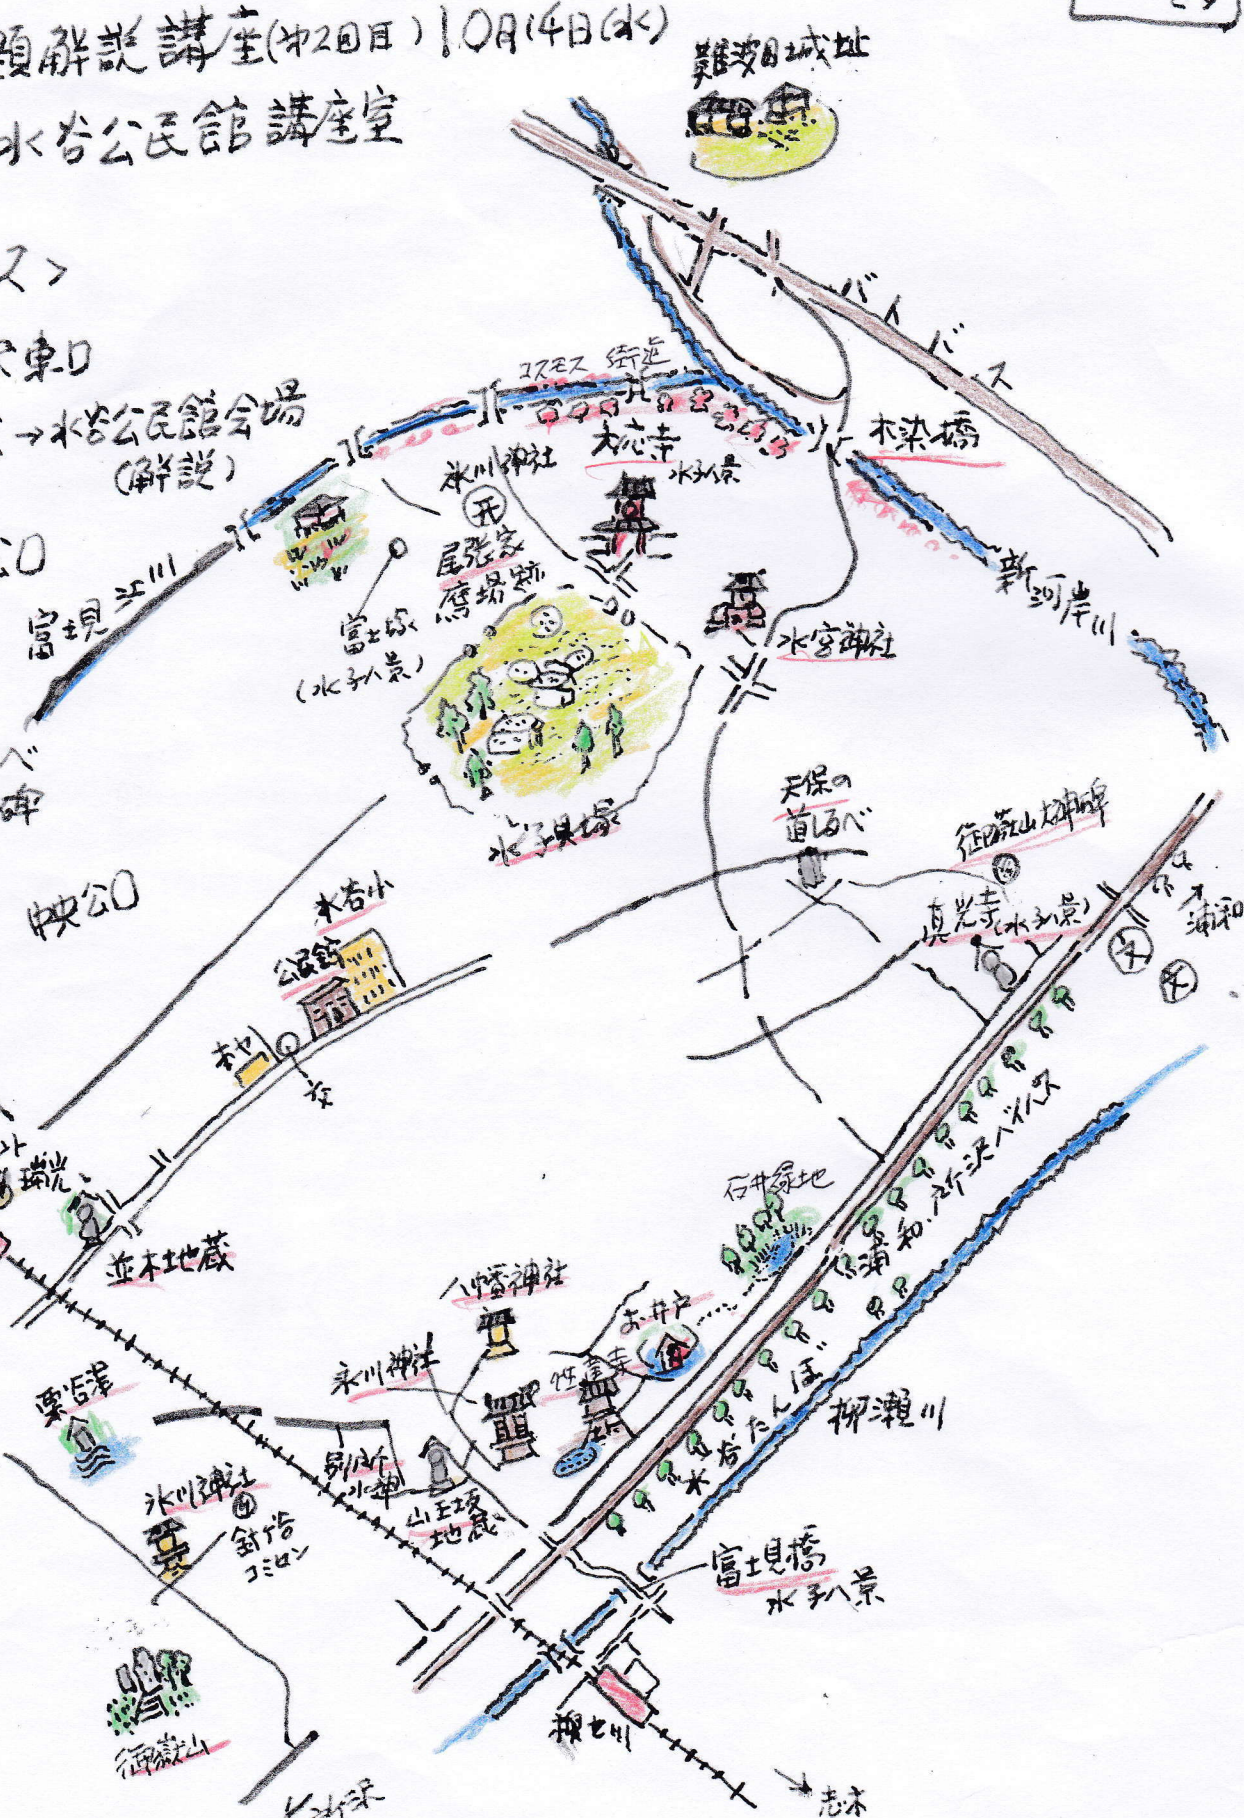 解説講座(才2回目)10月14日(水)
水谷公民館講座室
難波田城址
ス>
東口
→水谷公民館会場
(解説)
バイパス
コスモス街道
木染橋
氷川神社
大応寺
水子八景
尾張家
鷹場跡
富士見江川
富士塚
(水子八景)
新河岸川
水宮神社
水子貝塚
べ
碑
天保の
道しるべ
御嶽山大神碑
真光寺(水子八景)
浦和
中央公
水谷小
公民館
本や
文
並木地蔵
石井緑地
浦和所沢バイパス
八幡神社
お井戸
氷川神社
性蓮寺
水谷たんぼ
柳瀬川
栗谷津
別所
水神
山王坂
地蔵
氷川神社
針ヶ谷
コミセン
富士見橋
水子八景
御嶽山
柳セ川
志木